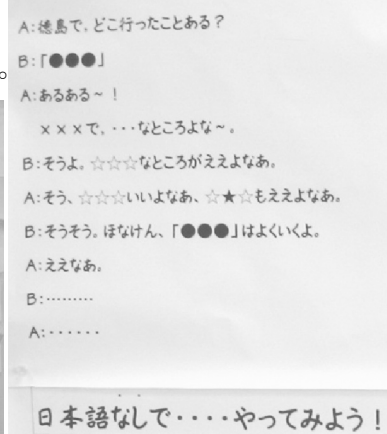 A:徳島で、どこ行ったことある?
B:「●●●」
A:あるある~!
×××で、・・・なところよな~。
B:そうよ。☆☆☆なところがええよなあ。
A:そう、☆☆☆いいよなあ、☆★☆もええよなあ。
B:そうそう。ほなけん、「●●●」はよくいくよ。
A:ええなあ。
B:………
A:・・・・・・
日本語なしで・・・・やってみよう!